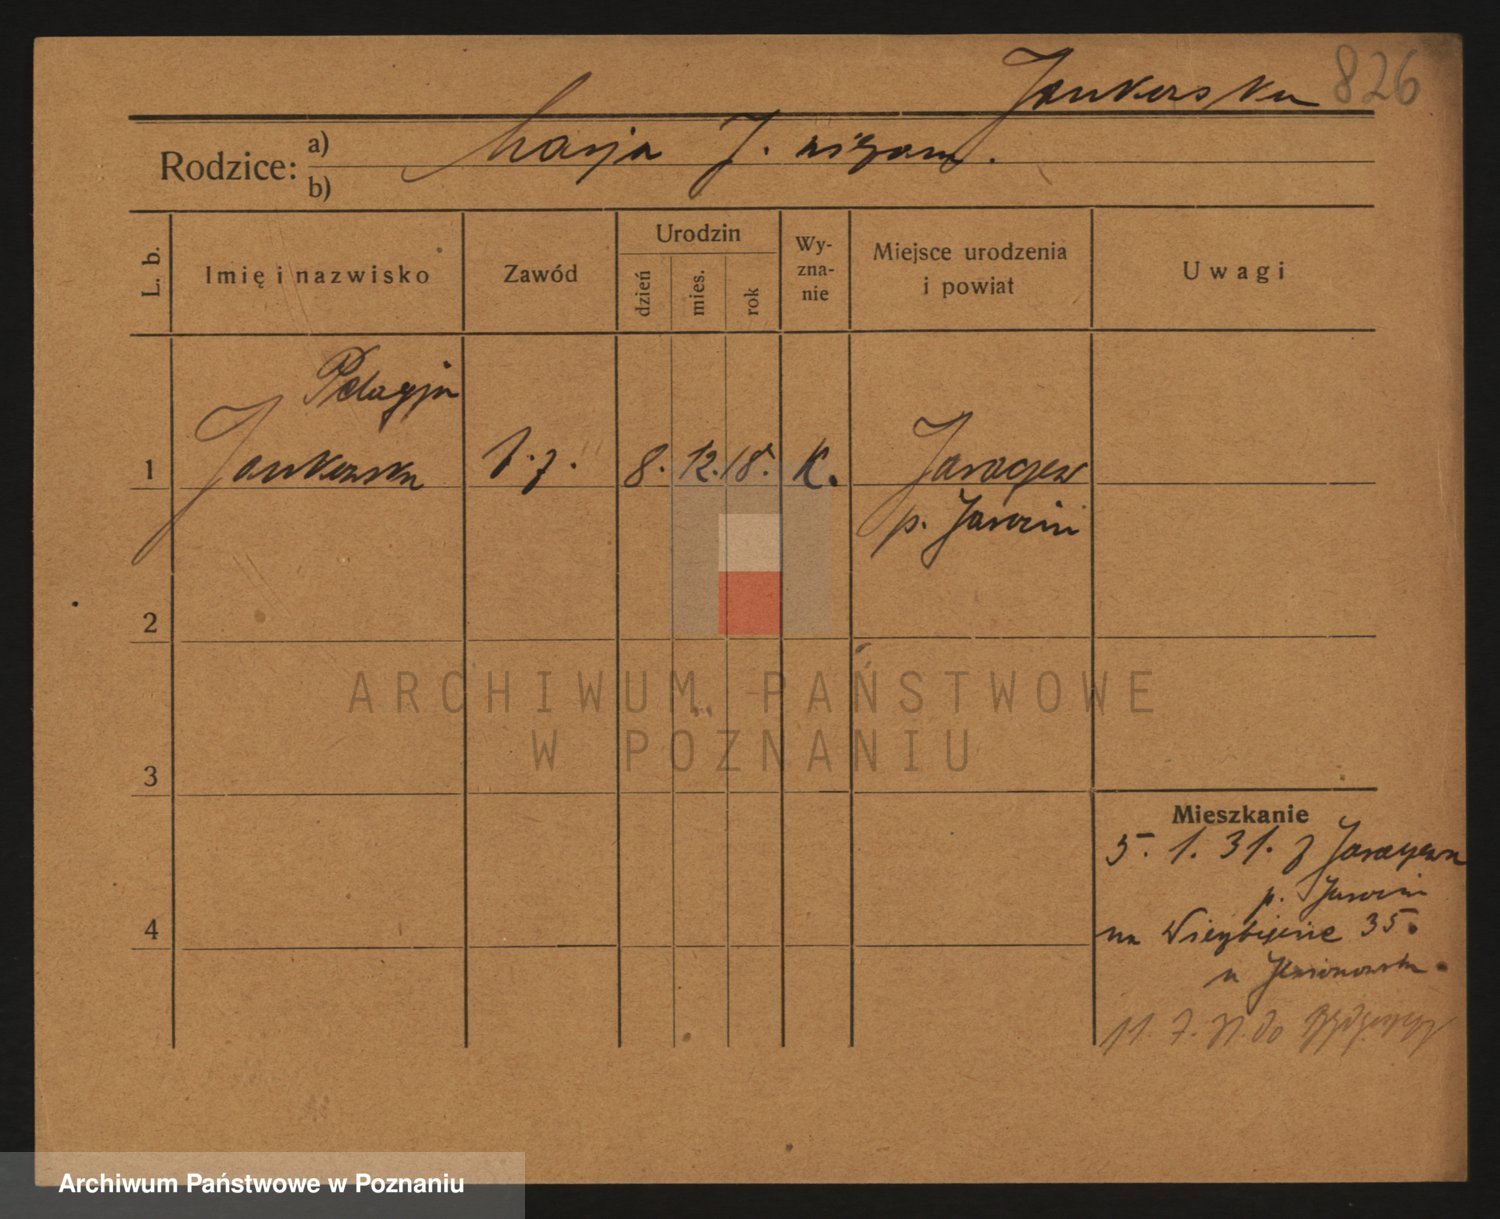 Jankowska 826
Rodzice: a) Marja J. niezam.
b)
L. b.
Imię i nazwisko
Zawód
Urodzin
dzień
mies.
rok
Wy-
zna-
nie
Miejsce urodzenia
i powiat
Uwagi
Pelagja
1 Jankowska 8. 12. 18. K. Jaraczew
p. Jarocin
2
3
4
ARCHIWUM PAŃSTWOWE
W POZNANIU
Mieszkanie
5. 1. 31. z Jaraczewa
p. Jarocin
na Wierzbięcice 35.
u
11. 7. 31. do Bydgoszczy
Archiwum Państwowe w Poznaniu